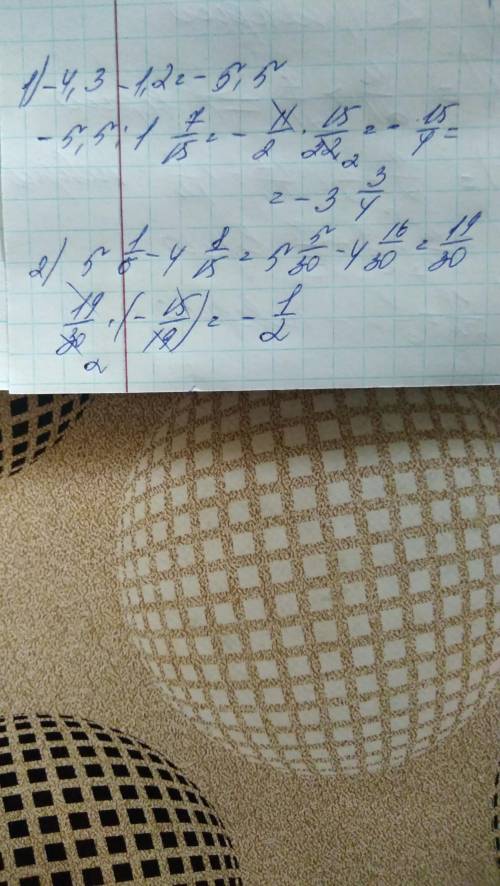 1) -4,3 - 1,2 = -5,5
-5,5 : 1 7/15 = - 11/2 · 15/22 2 = - 15/4 =
= -3 3/4
2) 5 1/6 - 4 8/15 = 5 5/30 - 4 16/30 = 19/30
19/30 2 · (- 15/19) = - 1/2